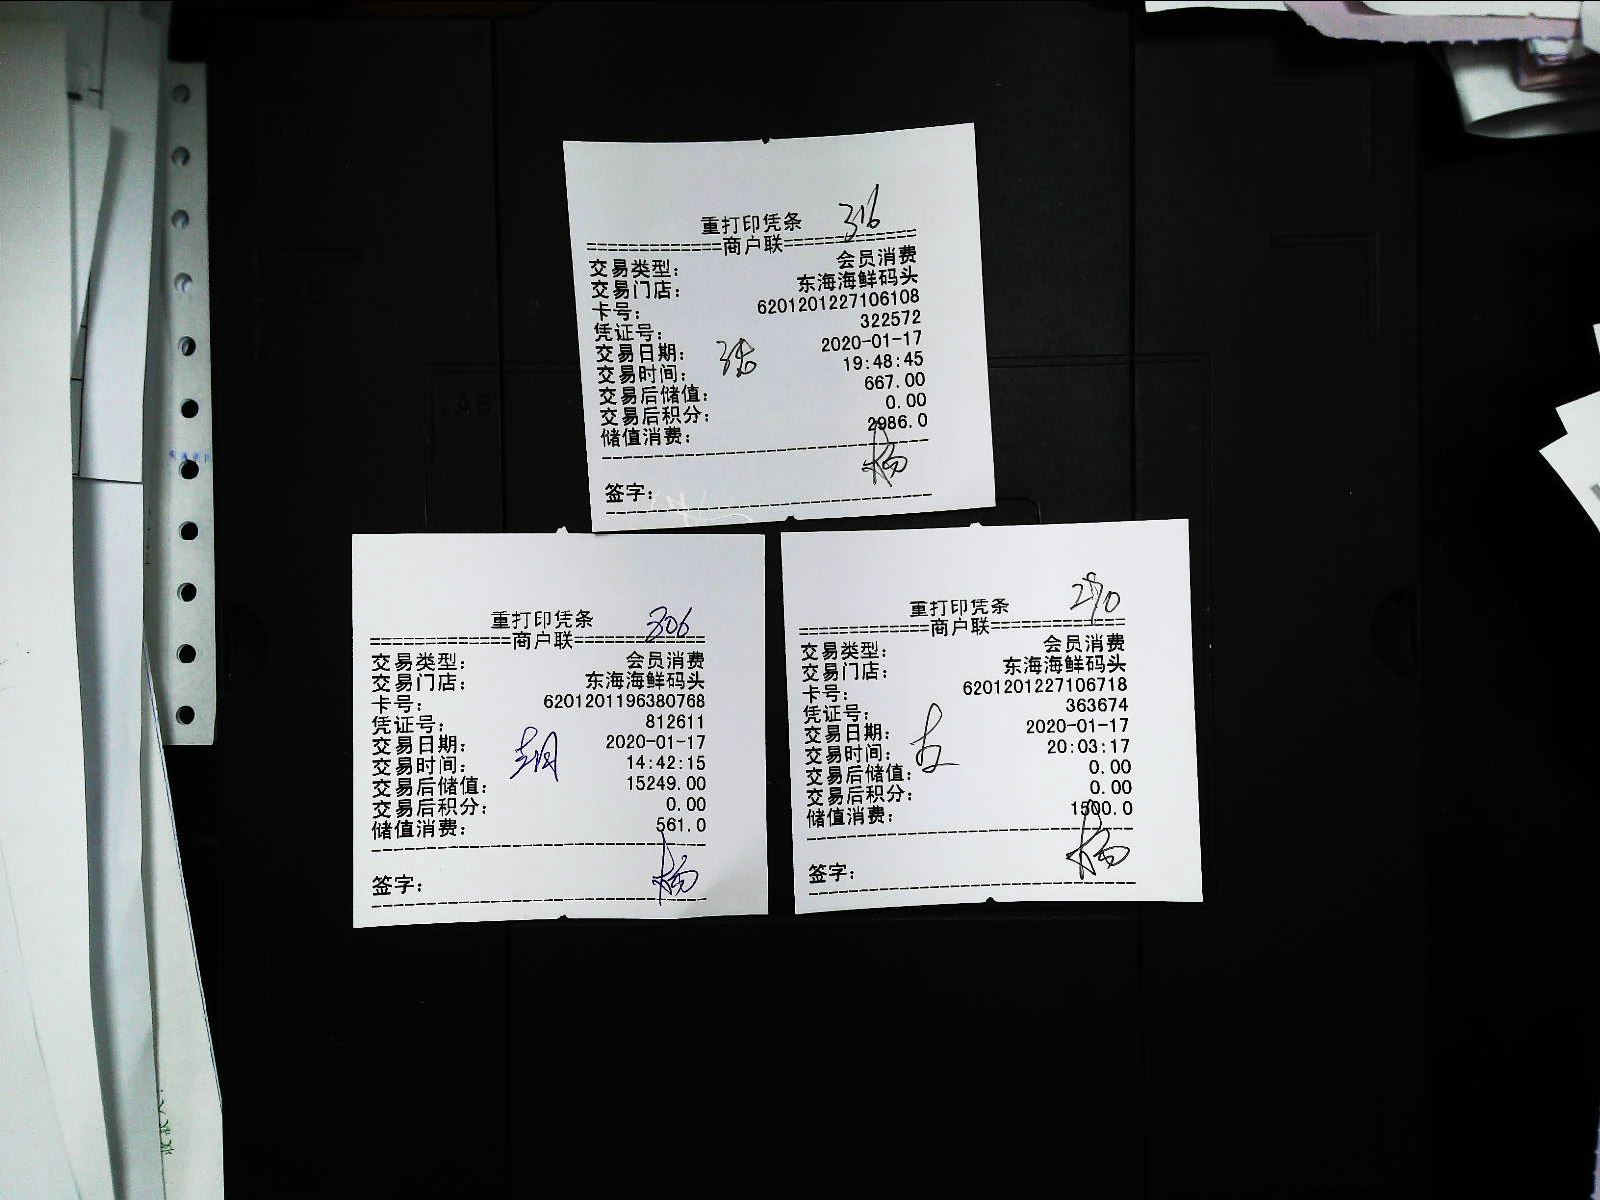 重打印凭条 316
=============商户联=============
交易类型： 会员消费
交易门店： 东海海鲜码头
卡号： 6201201227106108
凭证号： 322572
交易日期： 2020-01-17
交易时间： 19:48:45
交易后储值： 667.00
交易后积分： 0.00
储值消费： 2986.0
杨
签字：
重打印凭条 306
=============商户联=============
交易类型： 会员消费
交易门店： 东海海鲜码头
卡号： 6201201196380768
凭证号： 812611
交易日期： 2020-01-17
交易时间： 14:42:15
交易后储值： 15249.00
交易后积分： 0.00
储值消费： 561.0
签字： 杨
重打印凭条 270
=============商户联=============
交易类型： 会员消费
交易门店： 东海海鲜码头
卡号： 6201201227106718
凭证号： 363674
交易日期： 2020-01-17
交易时间： 20:03:17
交易后储值： 0.00
交易后积分： 0.00
储值消费： 1500.0
签字： 杨